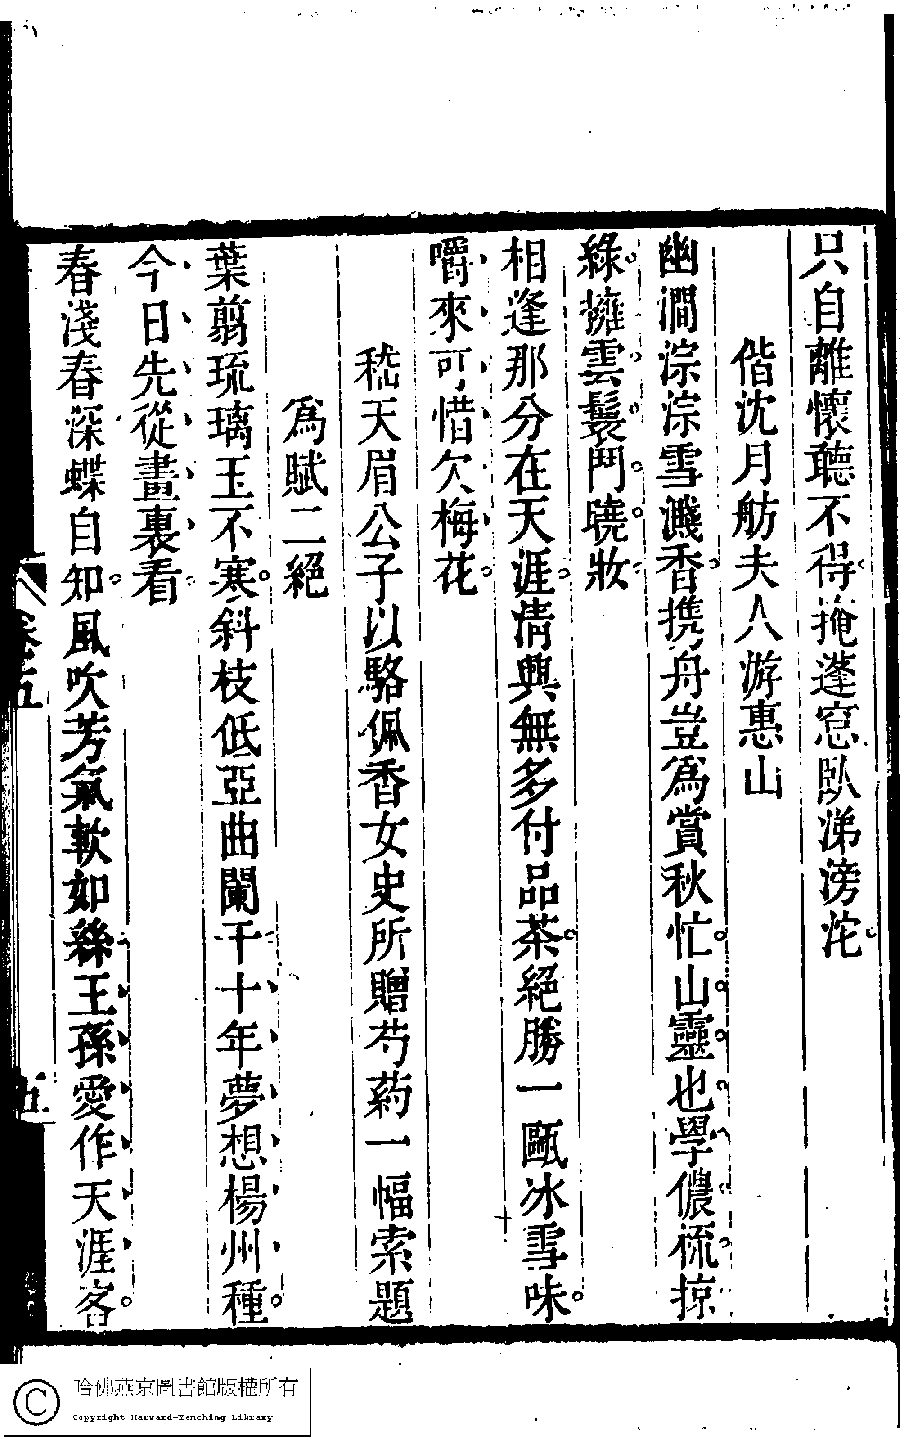 只自離懷聽不得掩蓬窓臥涕滂沱
偕沈月舫夫人游惠山
幽澗淙淙雪濺香携舟豈爲賞秋忙山靈也學儂梳掠
綠擁雲鬟鬥曉妝
相逢那分在天涯清興無多付品茶絕勝一甌冰雪味
嚼來可惜欠梅花
嵇天眉公子以駱佩香女史所贈芍葯一幅索題
爲賦二絕
葉翦琉璃玉不寒斜枝低亞曲闌干十年夢想楊州種
今日先從畫裏看
春淺春深蝶自知風吹芳氣軟如絲王孫愛作天涯客
卷五
五
哈佛燕京圖書館版權所有
Copyright Harvard-Yenching Library